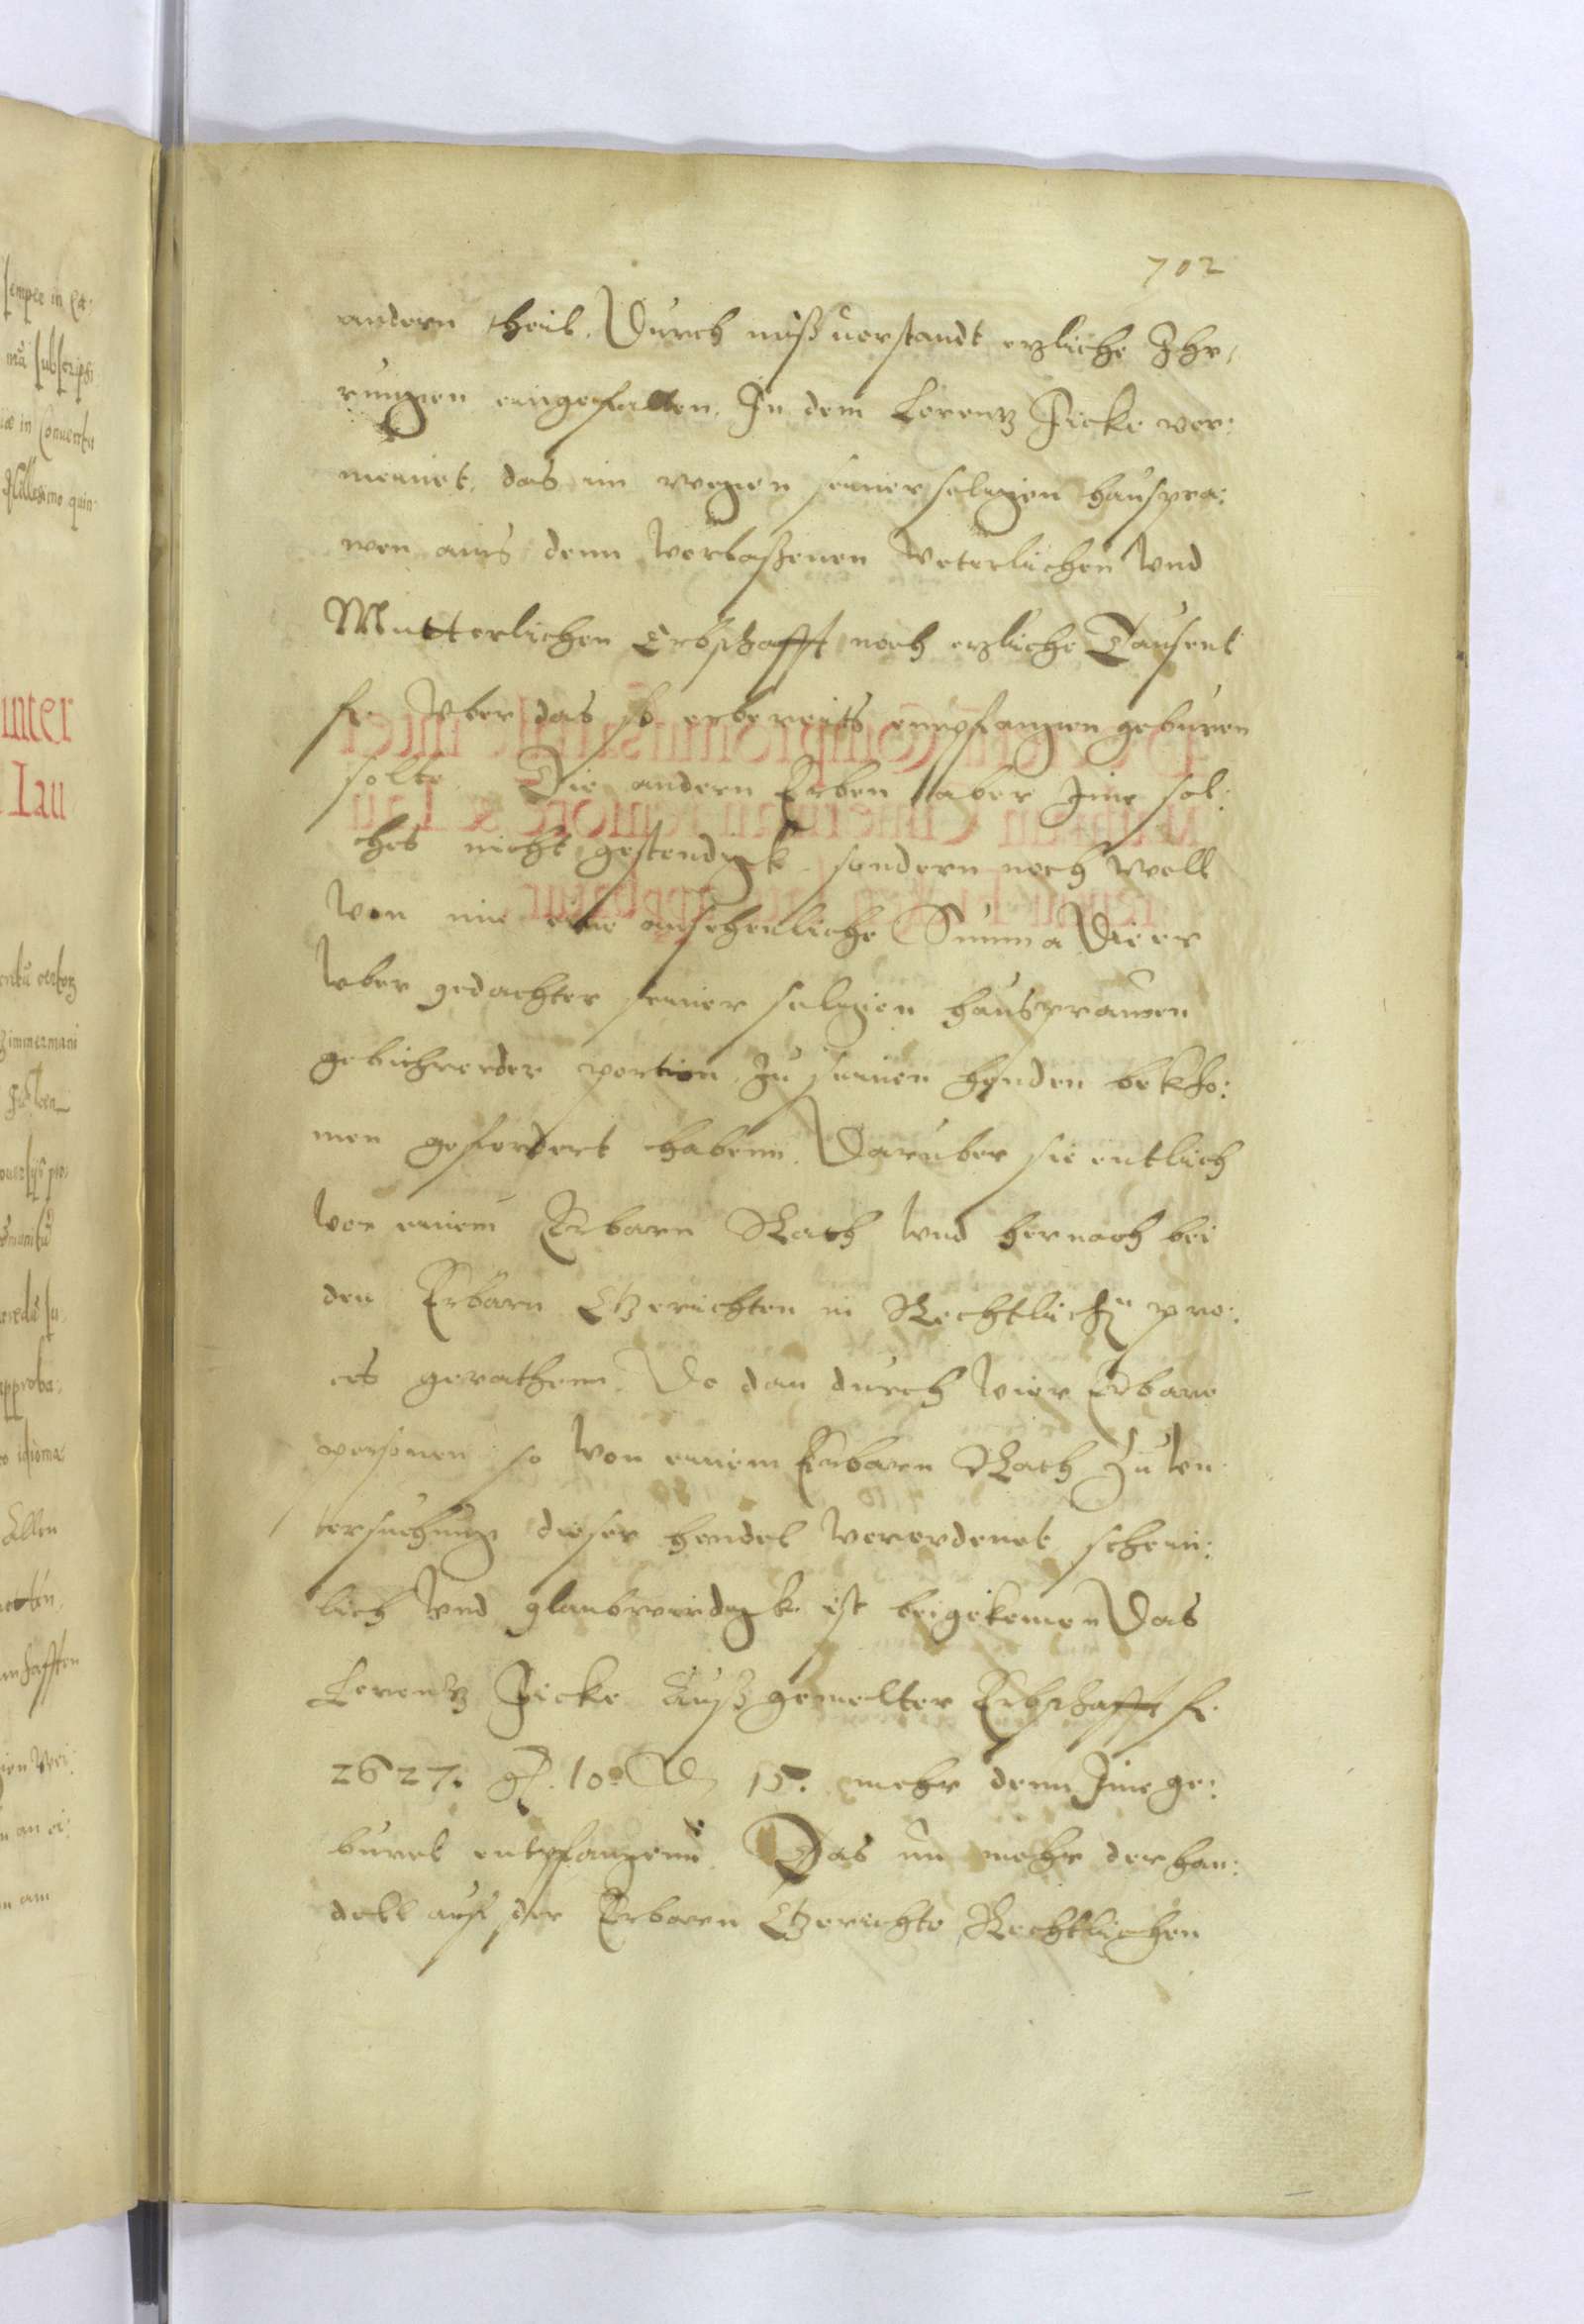 702
andern theil. Durch mißuerstandt ezliche Jhr,
rungen eingefallen, Jn dem Lorentz Jicke ver:
meinet, das im wegen seiner seligen hausfra:
wen aus denn verlaßenen Veterlichen vnd
Mutterlichen Erbschafft noch ezliche Tausent
fl. vber das so er bereits empfangen geburen
solte. Die andern Erben aber Jme sol:
ches nicht gestendigk. sondern noch woll
von im eine ansehenliche Summa die er
vber gedachter seiner seligen hausfrawen
gebührender portion zu seinen henden bekho:
men gefordert habenn. Daruber sie entlich
vor einem Erbarn Rath vnd hernach bei
den Erbarn Gerichten in Rechtlichen pro:
ces gerathenn. Do dan durch vier Erbare
personen so von einem Erbarn Rath zu vn
tersuchung dieser hendel verordenet schein:
lich vnd glaubwirdigk ist beigekomen Das
Lorentz Jicke Auß gemelter Erbschafft fl.
2627. gl. 10. d 15. mehr denn Jme ge:
buret entpfangenn. Das nu mehr der han:
dell auf der Erbaren Gerichte Rechtlichen
semper in
subscripsi
in Conuentu
Millesimo quin
inter
Lau
Zimmermani
approba:
idioma
Allen
schafften
an ei:
am